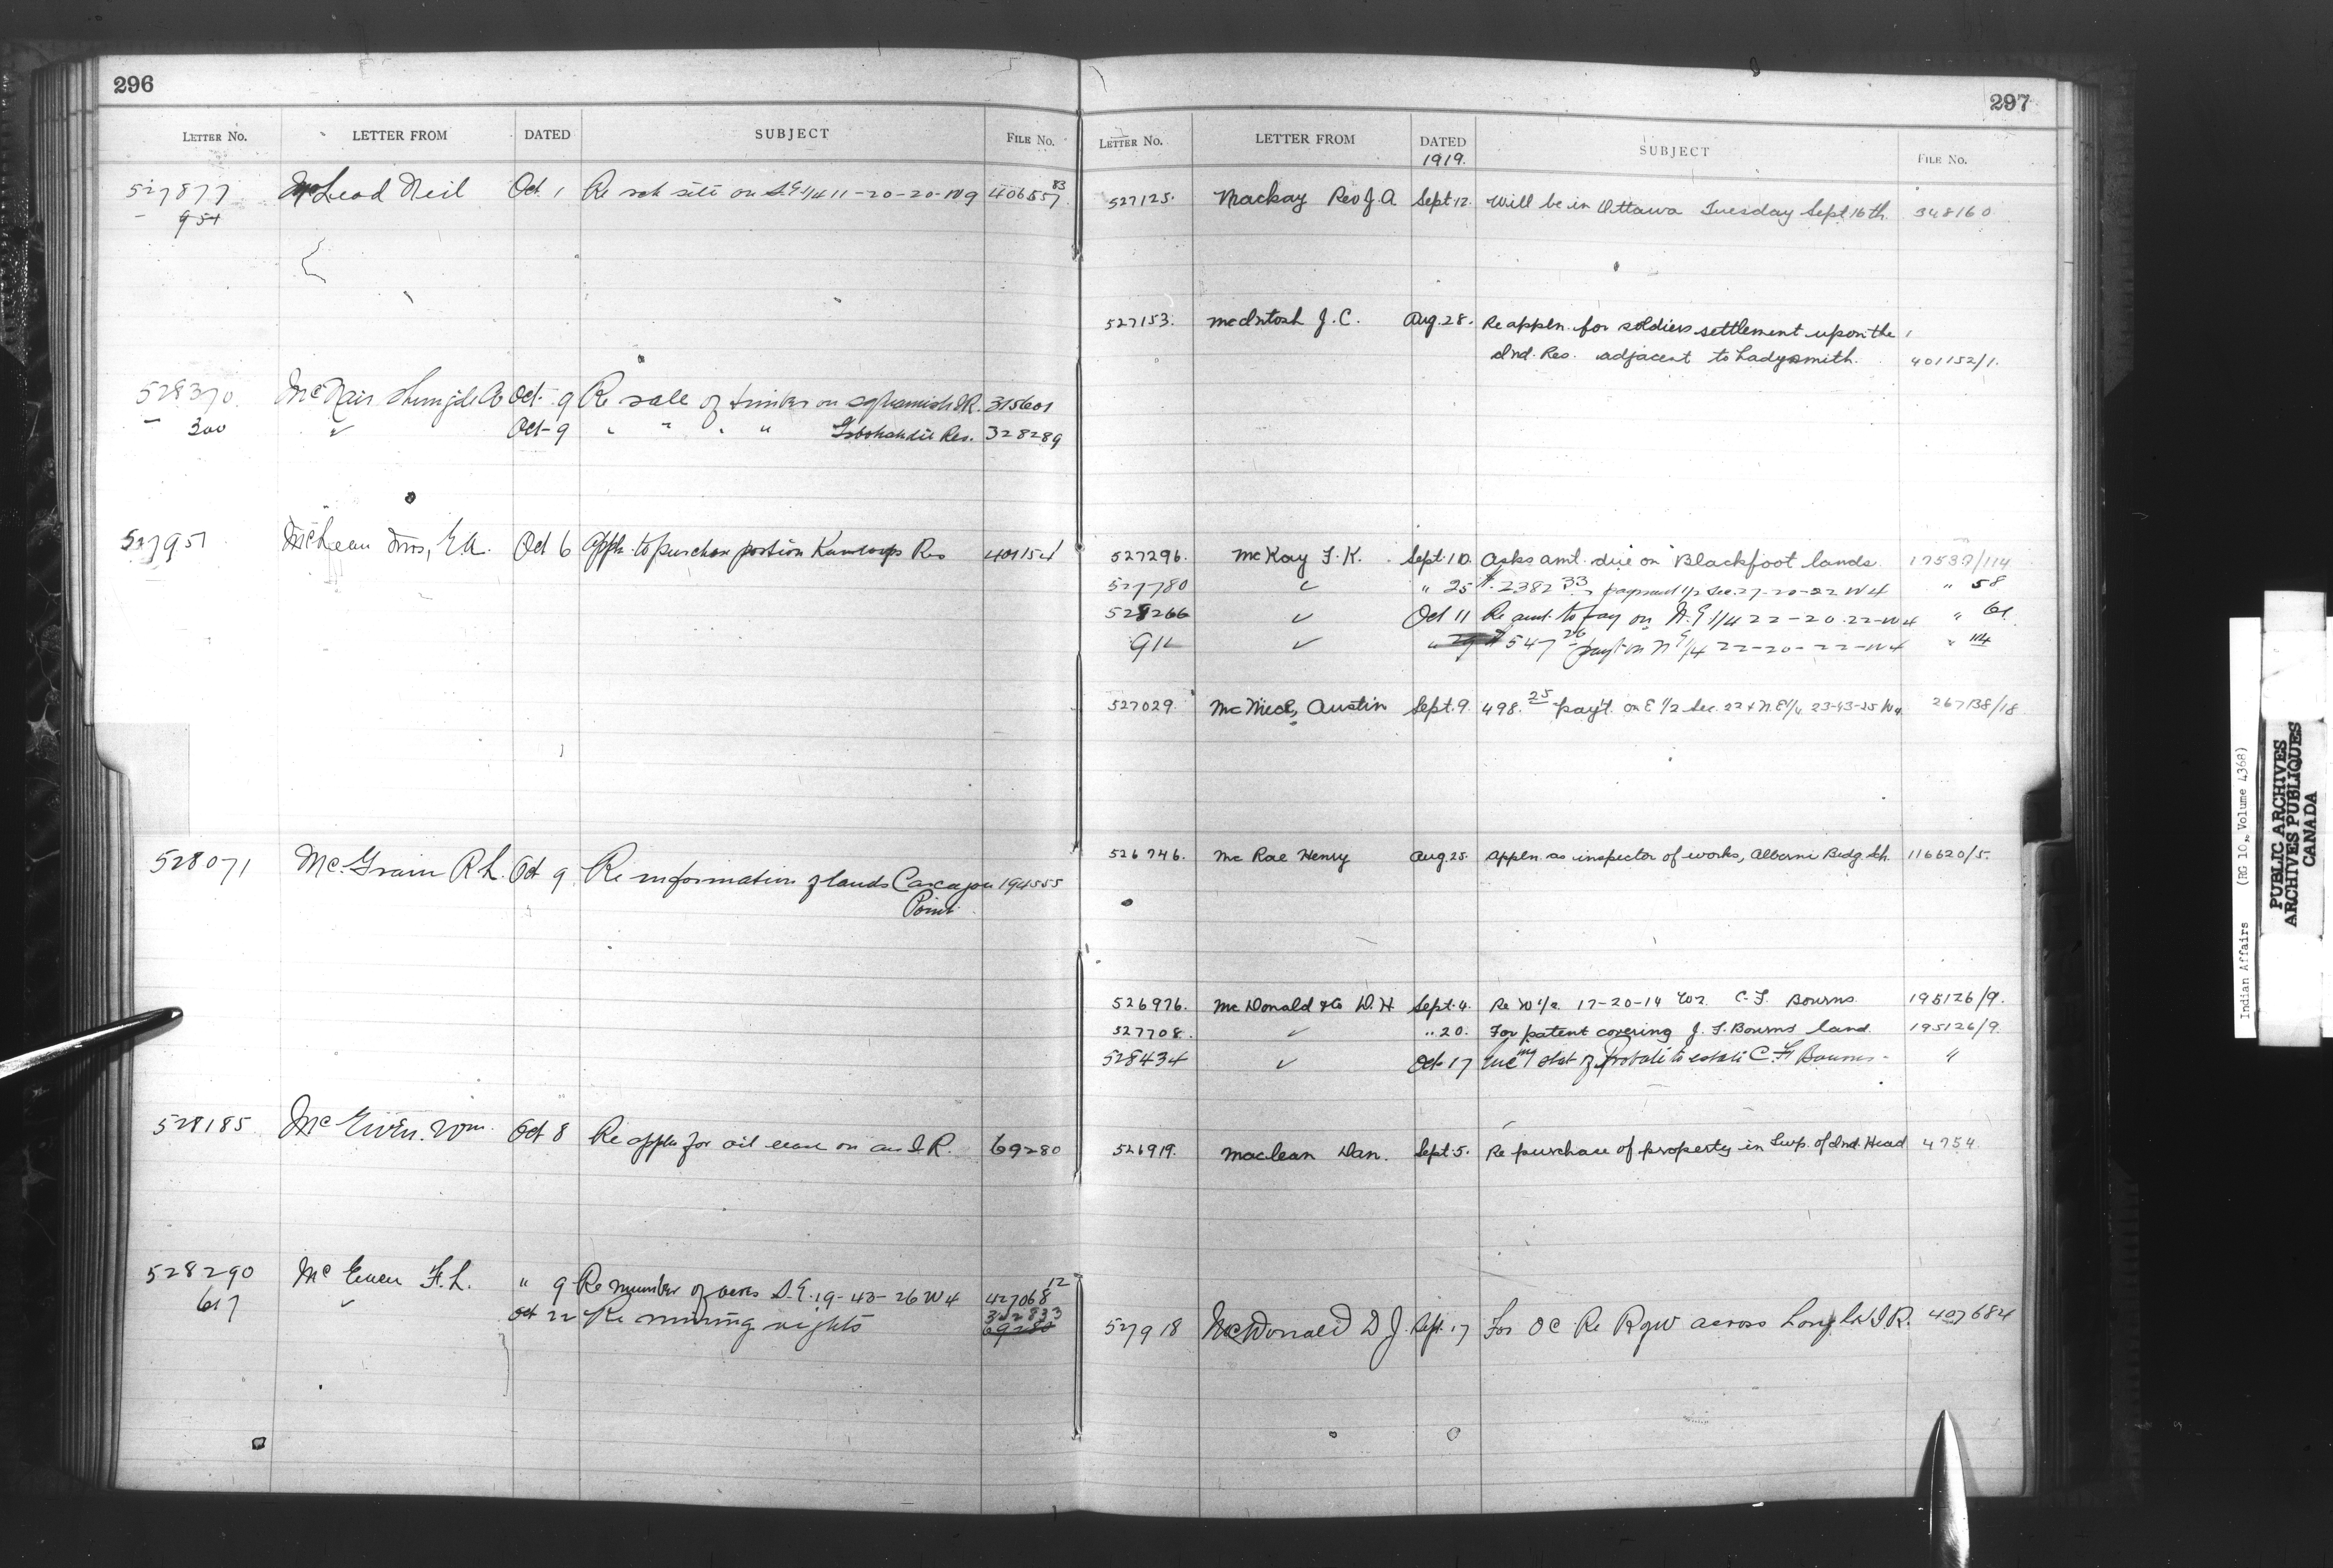 296
LETTER No. LETTER FROM DATED SUBJECT FILE No.
527877 McLeod Neil Oct 1 Re sch site on S.E 1/4 11-20-20-W9 406557 83
— 954
528370 McNair Shingle Co Oct 9 Re sale of timber on Squamish I.R. 315601
— 300 ✓ Oct 9 " " " " Res. 328289
527951 McLean Mrs, E.A. Oct 6 Appln. to purchase portion Kamloops Res 401154
528071 Mc.Grain R L. Oct 9 Re information of lands Carcajou 194555
Point
528185 McEwen. Wm. Oct 8 Re appln for oil lease on an I.R. 69280
528290 McEwen F. L. " 9 Re number of acres S.E. 19-43-26 W4 427068 12
617 ✓ Oct 22 Re mining rights 332833
69280
297
LETTER No. LETTER FROM DATED SUBJECT FILE No.
1919.
527125. Mackay Rev J. A. Sept. 12. Will be in Ottawa Tuesday Sept 16th. 348160
527153. McIntosh J. C. Aug. 28. Re appln. for soldiers settlement upon the
Ind. Res. adjacent to Ladysmith. 401152/1.
527296. McKay F. K. Sept. 10. Asks amt. due on Blackfoot lands. 17537/114
527780 ✓ " 25 $2382.33 payment 1/2 Sec. 27-20-22 W4 " 58
528266 ✓ Oct 11 Re amt. to pay on N.E 1/4 22-20-22-W4 " 61
911 ✓ " 29 $547 26 payt on N E 1/4 22-20-22-W4 " 114
527029 Austin Sept. 9. 498.25 pay't. on E 1/2 Sec. 22 & N.E 1/4 23-43-25 W4 267138/18
526746. Mc Rae Henry Aug. 25. Appln. as inspector of works, Alberni Bidg. Sch. 116620/5.
526976. McDonald & Co D. H. Sept. 4. Re W 1/2 17-20-14 W2. C. F. Bourns 195126/9.
527708. ✓ " 20. For patent covering J. F. Bourns land. 195126/9.
528434 ✓ Oct. 17 Encg of probate to estate C. F. Bourns - "
526919. Maclean Dan. Sept. 5. Re purchase of property in Twp. of Ind. Head 4754
527918 McDonald D J Sept. 17 For O C Re R of W across Long Lk I.R. 407684
Indian Affairs (RG 10, Volume 4368)
PUBLIC ARCHIVES
ARCHIVES PUBLIQUES
CANADA